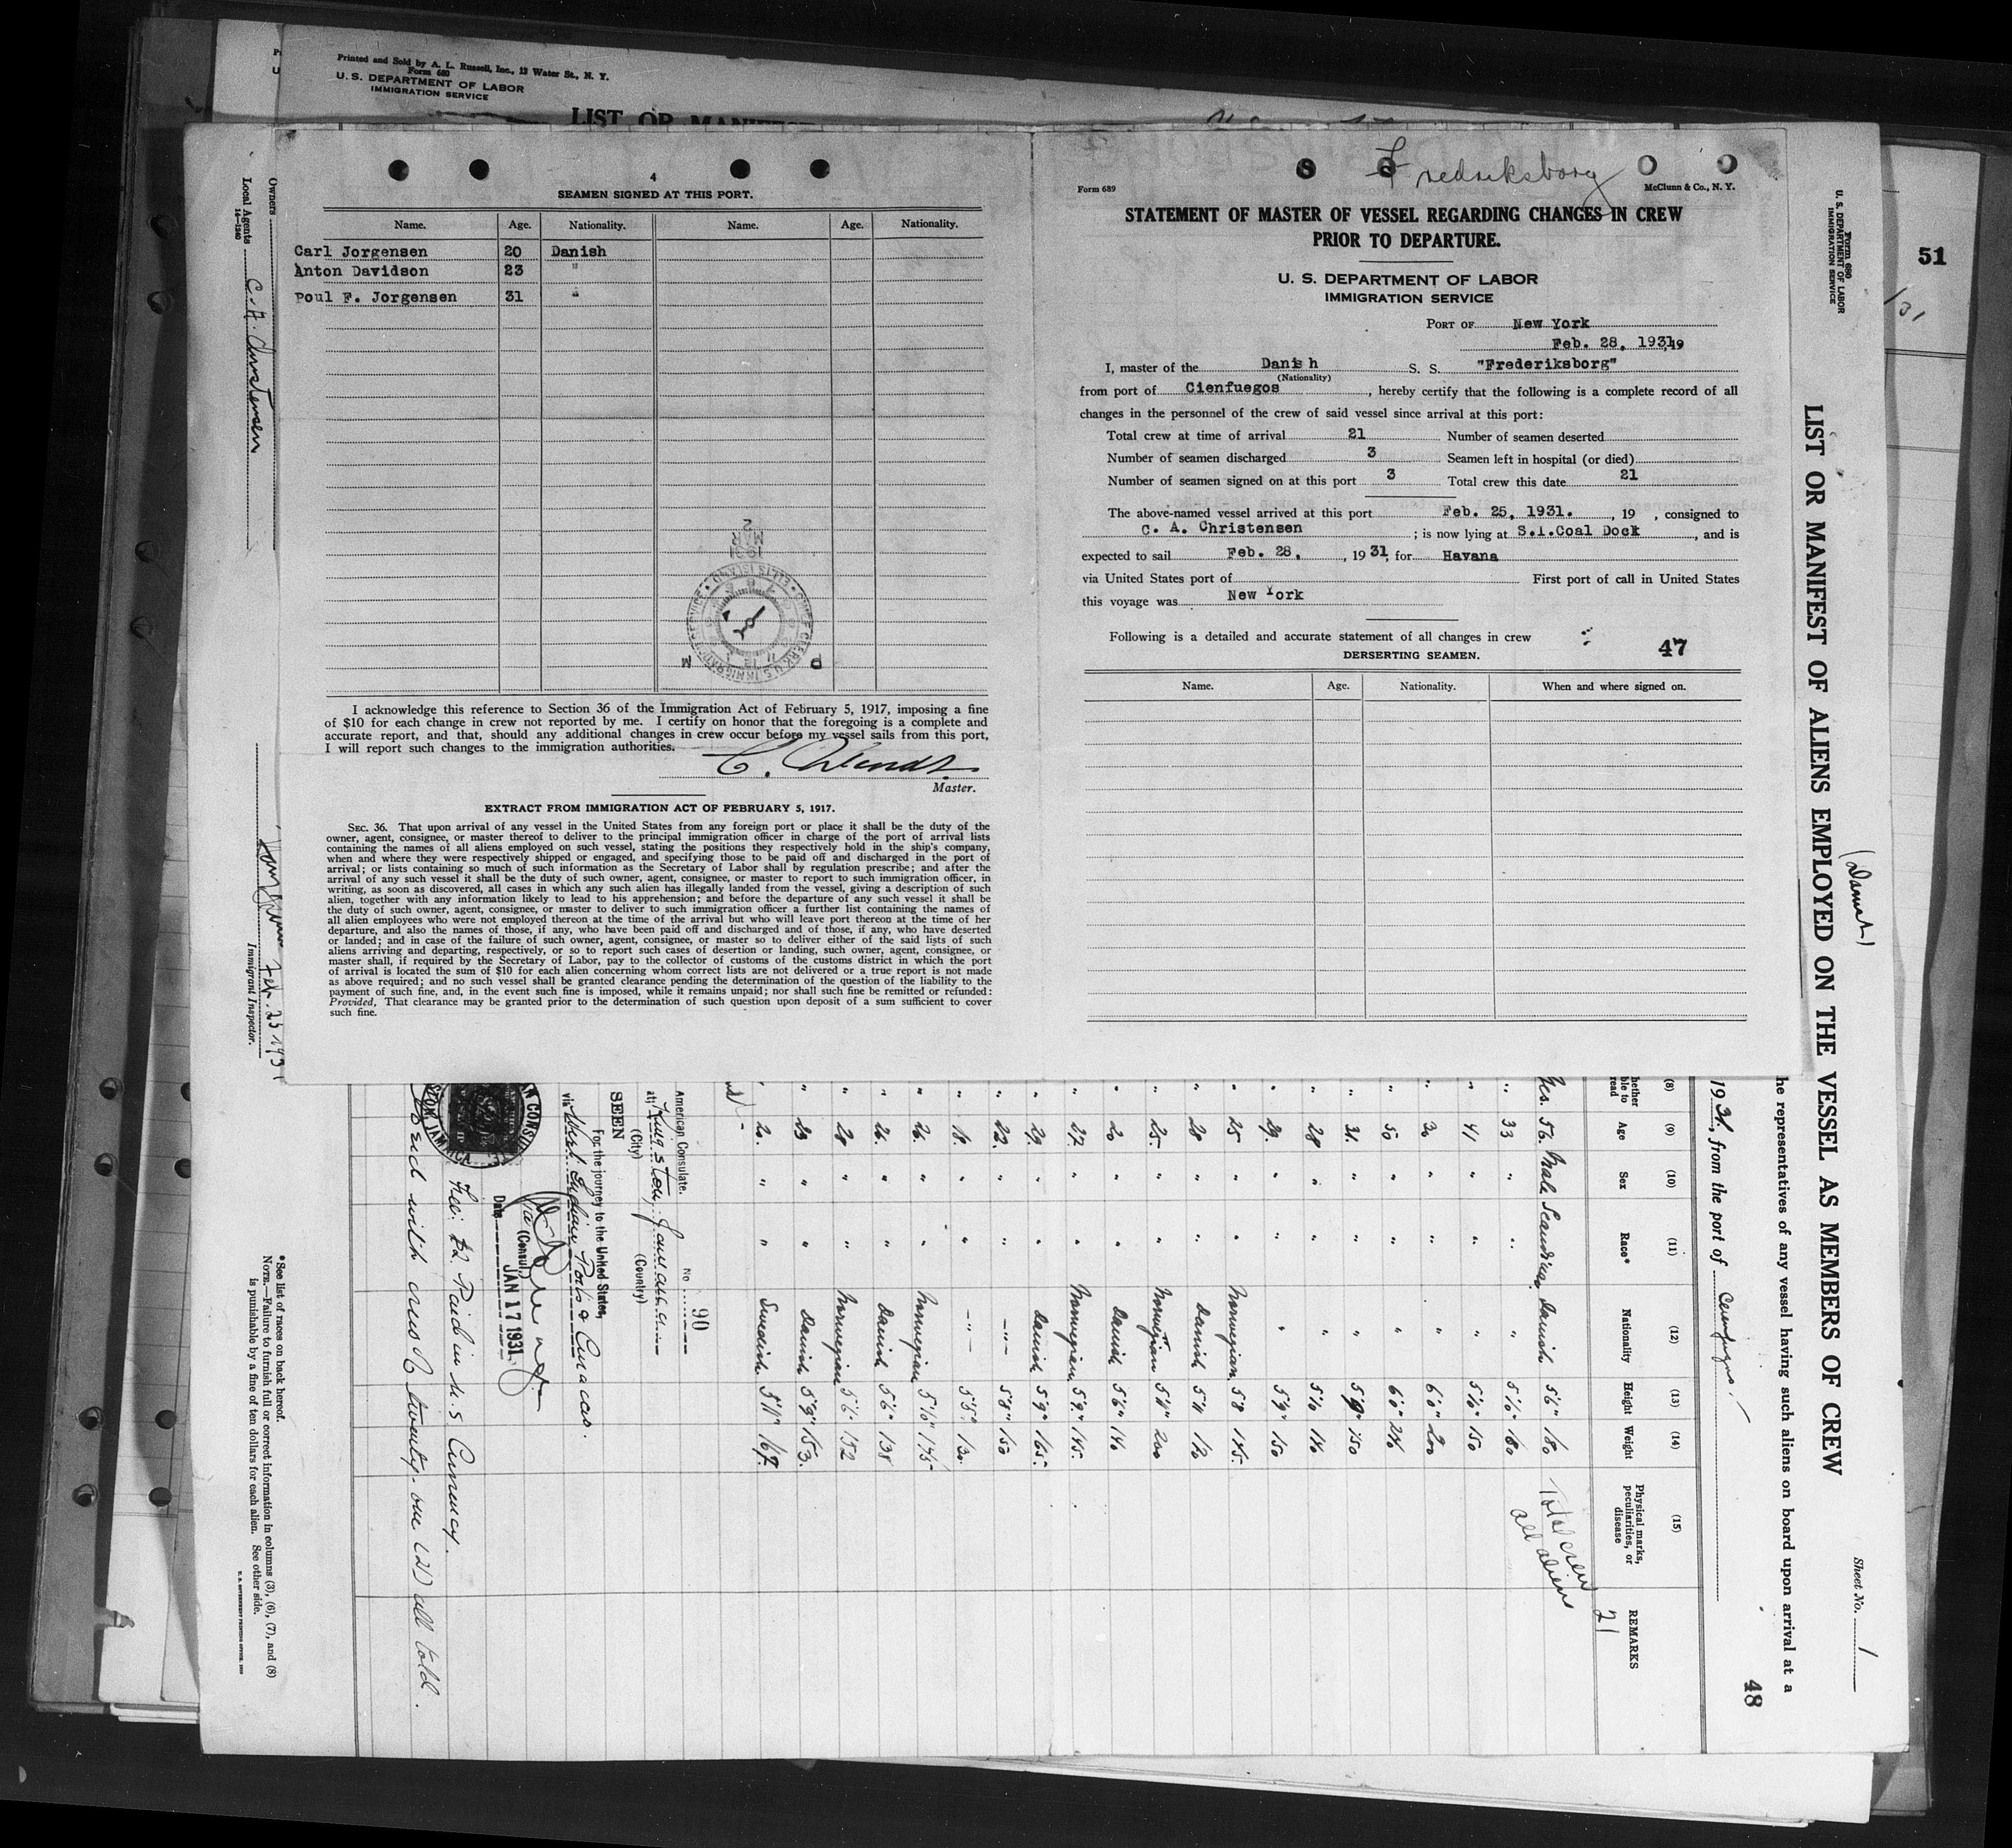 Printed and Sold by A. L. Russell, Inc., 13 Water St., N. Y.
Form 680
U. S. DEPARTMENT OF LABOR
IMMIGRATION SERVICE
LIST OR MANIFEST
4
SEAMEN SIGNED AT THIS PORT.
Name. Age. Nationality. Name. Age. Nationality.
Carl Jorgensen 20 Danish
Anton Davidson 23 "
Poul F. Jorgensen 31 "
2
MAR
1931
P M
I acknowledge this reference to Section 36 of the Immigration Act of February 5, 1917, imposing a fine
of $10 for each change in crew not reported by me. I certify on honor that the foregoing is a complete and
accurate report, and that, should any additional changes in crew occur before my vessel sails from this port,
I will report such changes to the immigration authorities.
Master.
EXTRACT FROM IMMIGRATION ACT OF FEBRUARY 5, 1917.
SEC. 36. That upon arrival of any vessel in the United States from any foreign port or place it shall be the duty of the
owner, agent, consignee, or master thereof to deliver to the principal immigration officer in charge of the port of arrival lists
containing the names of all aliens employed on such vessel, stating the positions they respectively hold in the ship's company,
when and where they were respectively shipped or engaged, and specifying those to be paid off and discharged in the port of
arrival; or lists containing so much of such information as the Secretary of Labor shall by regulation prescribe; and after the
arrival of any such vessel it shall be the duty of such owner, agent, consignee, or master to report to such immigration officer, in
writing, as soon as discovered, all cases in which any such alien has illegally landed from the vessel, giving a description of such
alien, together with any information likely to lead to his apprehension; and before the departure of any such vessel it shall be
the duty of such owner, agent, consignee, or master to deliver to such immigration officer a further list containing the names of
all alien employees who were not employed thereon at the time of the arrival but who will leave port thereon at the time of her
departure, and also the names of those, if any, who have been paid off and discharged and of those, if any, who have deserted
or landed; and in case of the failure of such owner, agent, consignee, or master so to deliver either of the said lists of such
aliens arriving and departing, respectively, or so to report such cases of desertion or landing, such owner, agent, consignee, or
master shall, if required by the Secretary of Labor, pay to the collector of customs of the customs district in which the port
of arrival is located the sum of $10 for each alien concerning whom correct lists are not delivered or a true report is not made
as above required; and no such vessel shall be granted clearance pending the determination of the question of the liability to the
payment of such fine, and, in the event such fine is imposed, while it remains unpaid; nor shall such fine be remitted or refunded:
Provided, That clearance may be granted prior to the determination of such question upon deposit of a sum sufficient to cover
such fine.
Fredriksborg
Form 689
McClunn & Co., N. Y.
STATEMENT OF MASTER OF VESSEL REGARDING CHANGES IN CREW
PRIOR TO DEPARTURE.
U. S. DEPARTMENT OF LABOR
IMMIGRATION SERVICE
PORT OF New York
Feb. 28, 1931, 19
I, master of the Danish S. S. "Frederiksborg"
(Nationality)
from port of Cienfuegos, hereby certify that the following is a complete record of all
changes in the personnel of the crew of said vessel since arrival at this port:
Total crew at time of arrival 21 Number of seamen deserted
Number of seamen discharged 3 Seamen left in hospital (or died)
Number of seamen signed on at this port 3 Total crew this date 21
The above-named vessel arrived at this port Feb. 25, 1931. , 19 , consigned to
C. A. Christensen ; is now lying at S.I.Coal Dock , and is
expected to sail Feb. 28, , 1931, for Havana
via United States port of First port of call in United States
this voyage was New York
Following is a detailed and accurate statement of all changes in crew
47
DERSERTING SEAMEN.
Name. Age. Nationality. When and where signed on.
51
Form 680
U. S. DEPARTMENT OF LABOR
IMMIGRATION SERVICE
LIST OR MANIFEST OF ALIENS EMPLOYED ON THE VESSEL AS MEMBERS OF CREW
(Danish)
Sheet No. 1
he representatives of any vessel having such aliens on board upon arrival at a
48
1931, from the port of Cienfuegos.
(8) (9) (10) (11) (12) (13) (14) (15)
Age Sex Race* Nationality Height Weight Physical marks, peculiarities, or disease REMARKS
21
Total crew
all aliens
Yes. 56. Male Danish 5'6" 180
" 33 " " " 5'6" 180
" 41 " " " 5'6" 150
" 30 " " " 6'0" 200
" 50 " " " 6'0" 240
" 31. " " " 5'9" 150
" 28 " " "
" 29. " " " 5'9" 150
" 25 " " Norwegian 5'8 145.
" 28 " " Danish
" 25. " " Norwegian 5'11" 200
" 20 " " Danish 5'6" 140
" 27. " " Norwegian 5'9" 145.
" 29. " " Danish 5'9" 165.
" 22. " " -"- 5'8" 150
" 18. " " -"- 5'5" 130.
" 26. " " Norwegian 5'10" 175
" 26. " " Danish 5'6" 138
" 28 " " Norwegian 5'6" 152
" 23 " " Danish 5'9" 153.
" 20. " " Swedish 5'11" 167.
No. 90
American Consulate.
at Kingston, Jamaica
(City) (Country)
SEEN
For the journey to the United States,
via West Indian Ports & Curacao.
(Consul)
JAN 17 1931
Date
Fee: $2 Paid in U.S Currency.
with crew of twenty-one (21) all told.
Owners
Local Agents C. A. Christensen
14-1240
Feb. 25 1931
Immigrant Inspector.
*See list of races on back hereof.
NOTE.—Failure to furnish full or correct information in columns (3), (6), (7), and (8)
is punishable by a fine of ten dollars for each alien. See other side.